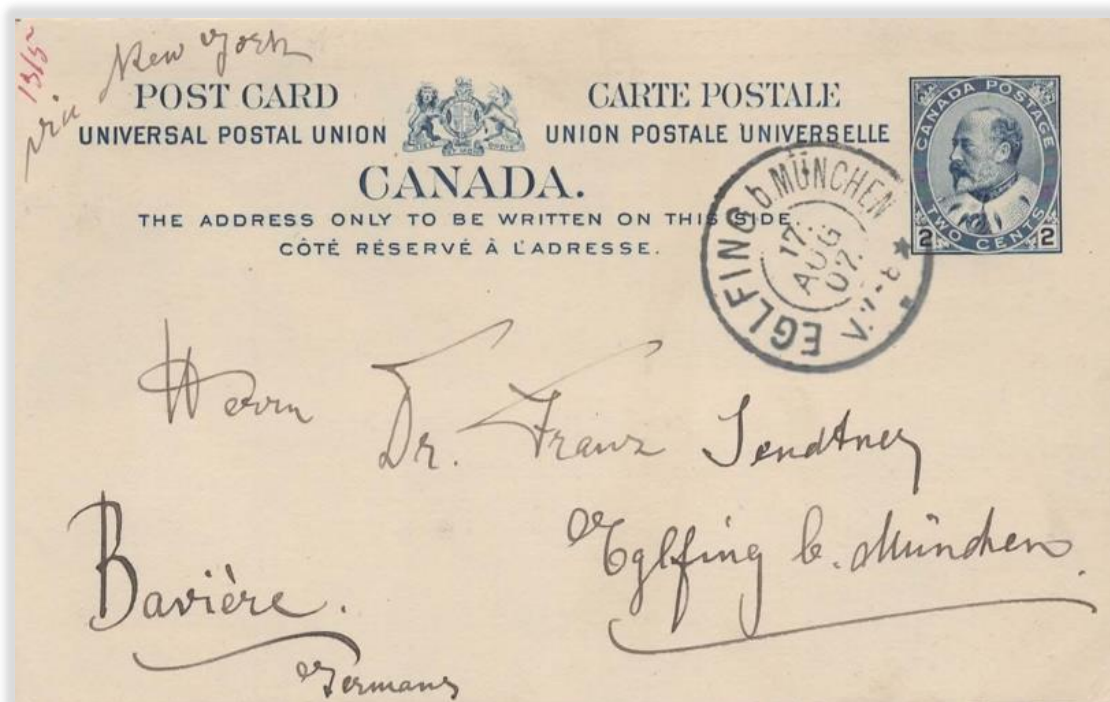 13/5
via New York
POST CARD CARTE POSTALE
UNIVERSAL POSTAL UNION UNION POSTALE UNIVERSELLE
CANADA.
THE ADDRESS ONLY TO BE WRITTEN ON THIS SIDE.
CÔTÉ RÉSERVÉ À L'ADRESSE.
CANADA POSTAGE
2 TWO CENTS 2
EGLFING b. MÜNCHEN
17.
AUG
07.
V. 7-8
Herrn
Dr. Franz Sendtner
Eglfing b. München
Bavière.
Germany